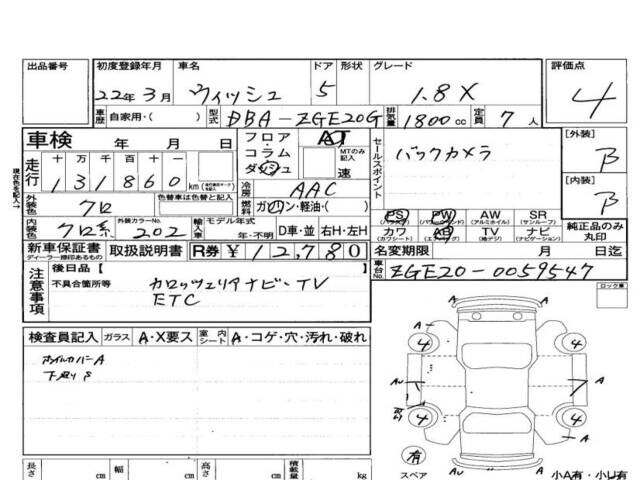 出品番号 初度登録年月 車名 ドア 形状 グレード 評価点
22年3月 ウィッシュ 5 1.8X 4
車歴 自家用・( ) 型式 DBA-ZGE20G 排気量 1800cc 定員 7人
車検 年 月 日 フロア AT セールスポイント バックカメラ [外装] B
走行 十 万 千 百 十 一 コラム MTのみ記入
131860km ダッシュ 速 [内装] B
外装色 クロ 色替車は色替と記入 冷房 AAC
燃料 ガソリン・軽油・( ) PS PW AW SR
(パワステ) (パワーウィンド) (アルミホイル) (サンルーフ)
内装色 クロ系 外装カラーNo. 202 輸入車 モデル年式 年・不明 D車・並 右H・左H カワ AB TV ナビ 純正品のみ丸印
(カワシート) (エアバッグ) (純テレビ) (ナビゲーション)
新車保証書 取扱説明書 R券 ¥12,780 名変期限 月 日迄
ディーラー捺印あるもの
車台No. ZGE20-0059547
注意事項 後日品【 】
不具合箇所等 カロッツェリアナビ・TV
ETC
ロック車
検査員記入 ガラス A・X要ス 室内シート A・コゲ・穴・汚れ・破れ
ホイルカバーA
下廻りS
A A
4 4
AU A
4 4
A A
有
スペア AU A 小A有・小U有
長さ cm 幅 cm 高さ cm 積載量 kg
現在色を記入→